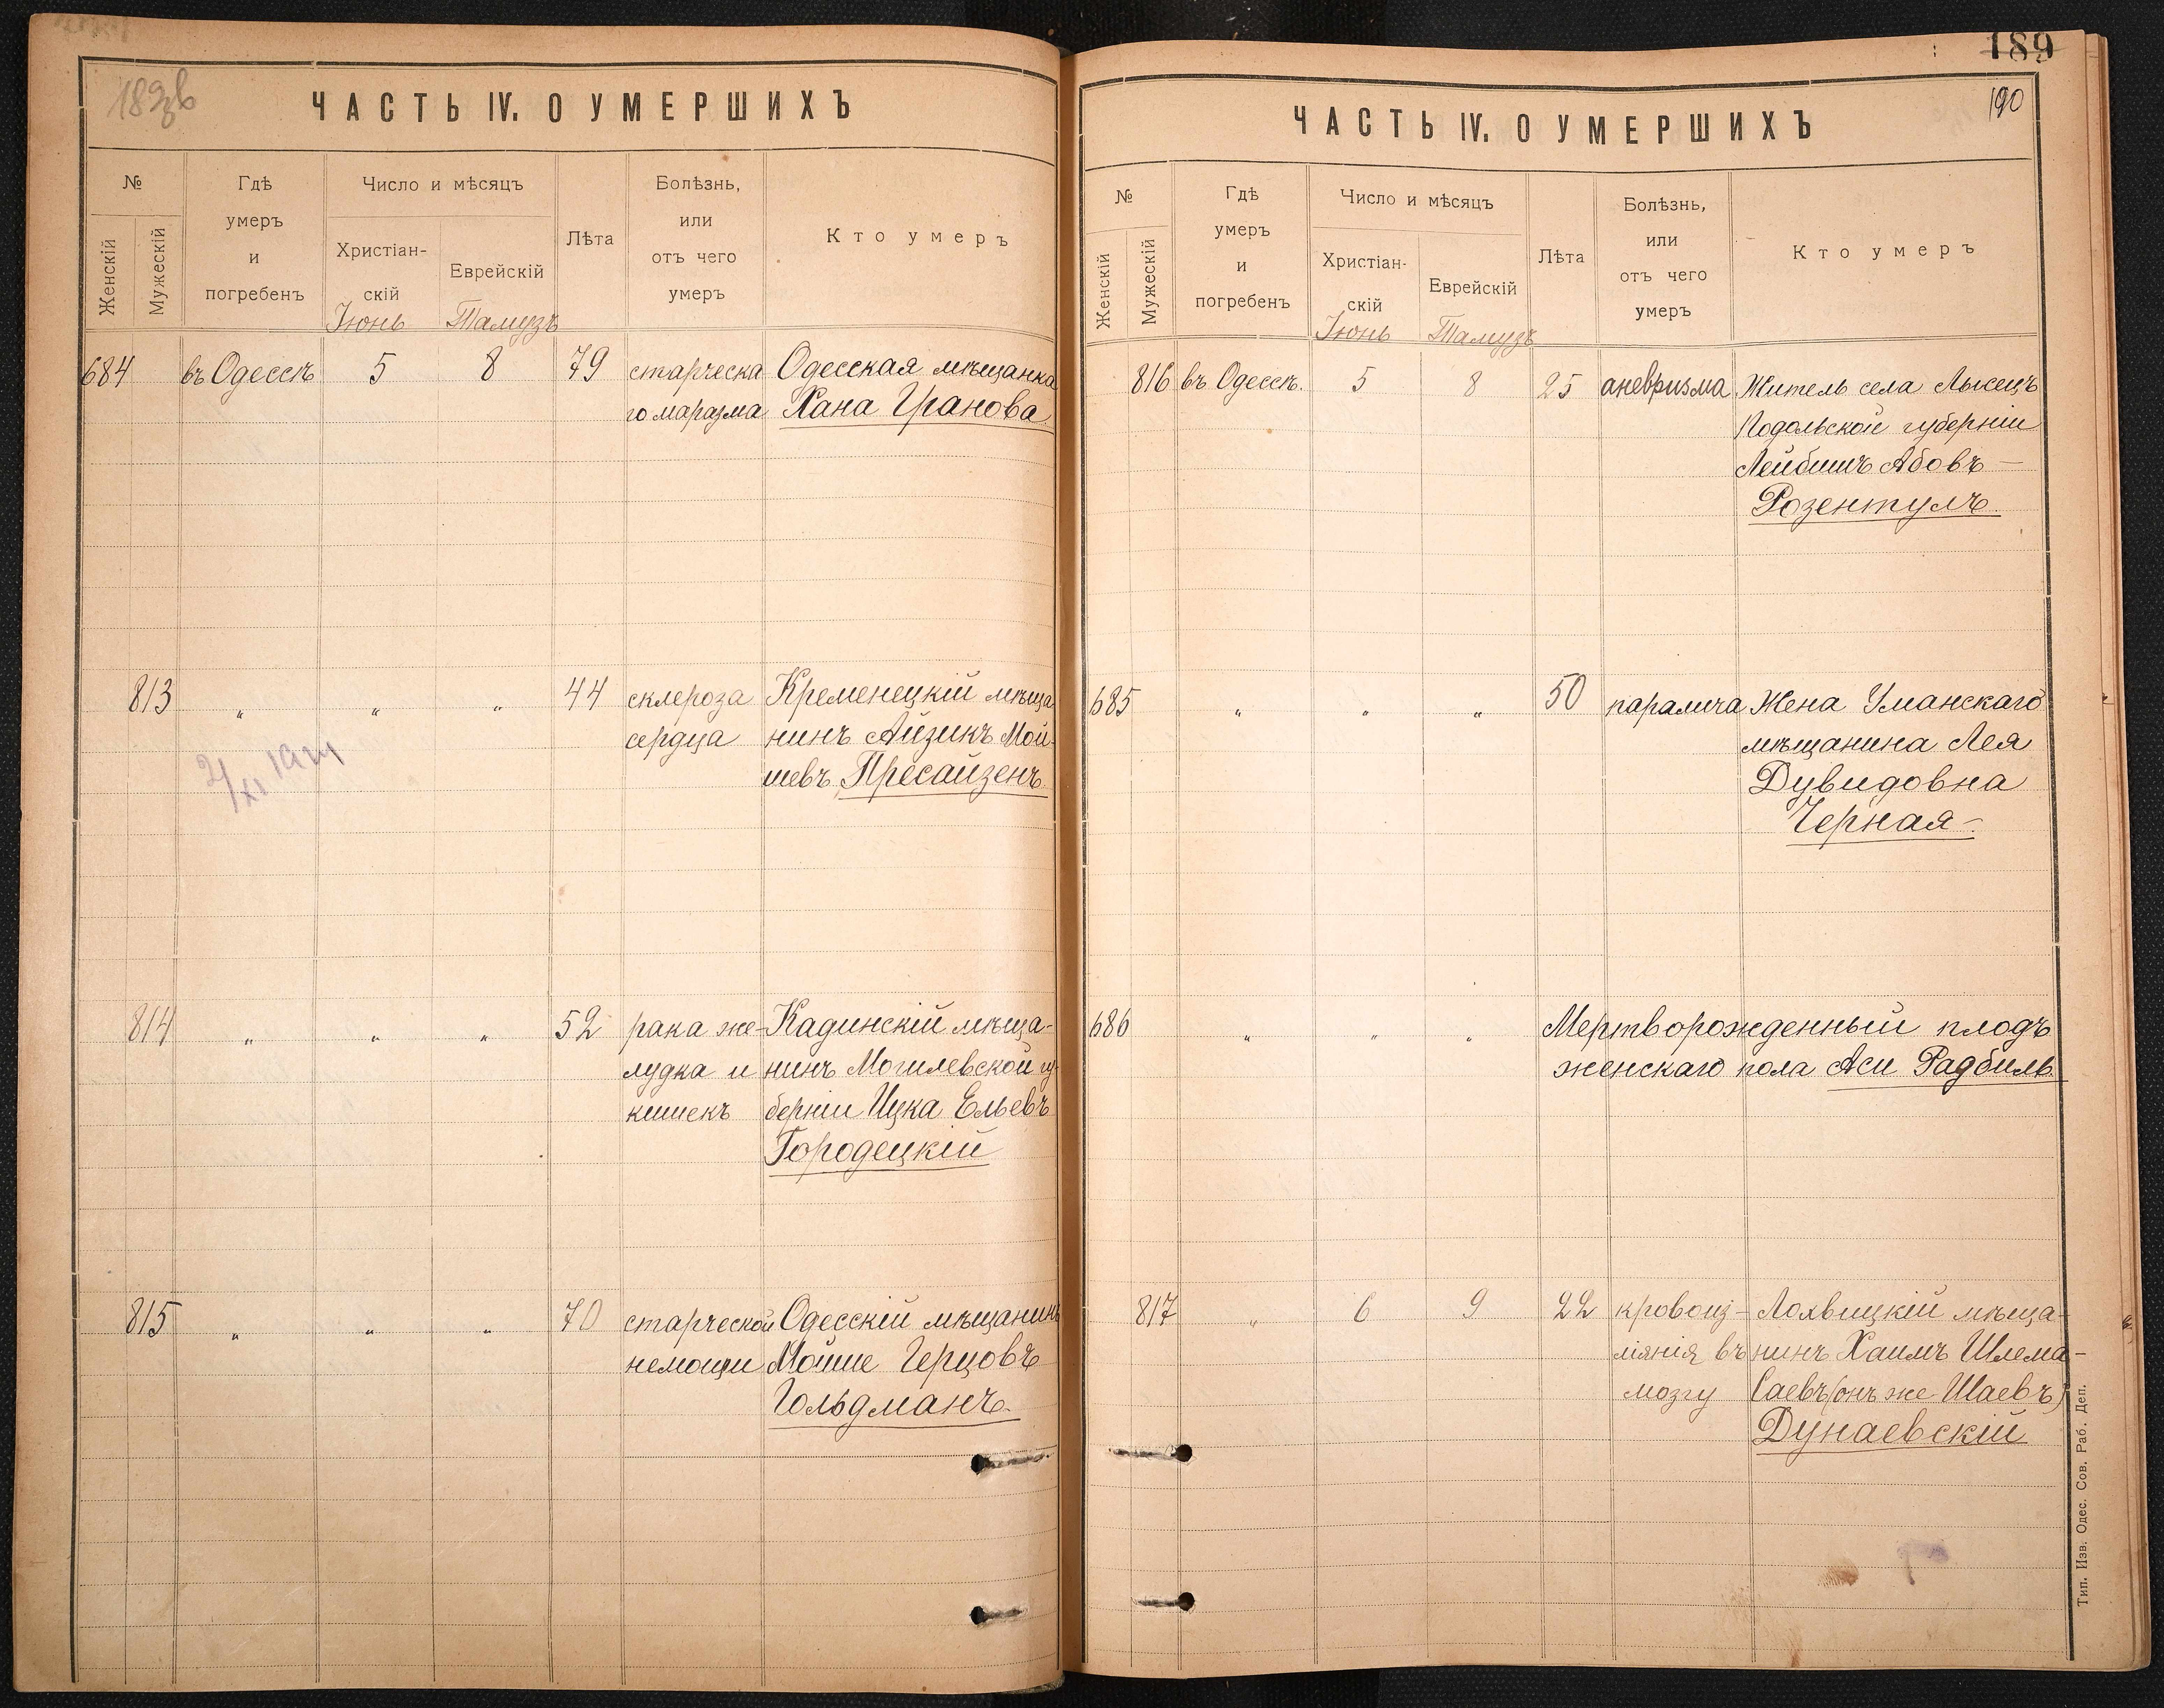 189об
ЧАСТЬ IV. О УМЕРШИХЪ
№
Женскій
Мужескій
Гдѣ
умеръ
и
погребенъ
Число и мѣсяцъ
Христіан-
скій
Іюнь
Еврейскій
Тамузъ
Лѣта
Болѣзнь,
или
отъ чего
умеръ
Кто умеръ
684 въ Одессѣ 5 8 79 старческа Одесская мѣщанка
го маразма Хана Гранова
813 „ „ „ 44 склероза Кременецкій мѣща
сердца нинъ Айзикъ Мой-
шевъ Пресайзенъ
814 „ „ „ 52 рака же- Кадинскій мѣща-
лудка и нинъ Могилевской гу-
кишекъ берніи Ицка Ельевъ
Городецкій
815 „ „ „ 70 старческой Одесскій мѣщанинъ
немощи Мойше Герцовъ
Гольдманъ
189
190
ЧАСТЬ IV. О УМЕРШИХЪ
№
Женскій
Мужескій
Гдѣ
умеръ
и
погребенъ
Число и мѣсяцъ
Христіан-
скій
Іюнь
Еврейскій
Тамузъ
Лѣта
Болѣзнь,
или
отъ чего
умеръ
Кто умеръ
816 въ Одессѣ. 5 8 25 аневризма Житель села Лысецъ
Подольской губерніи
Лейбишъ Абовъ —
Розентулъ
685 „ „ „ 50 паралича Жена Уманскаго
мѣщанина Лея
Дувидовна
Черная -
686 „ „ „ Мертворожденный плодъ
женскаго пола Аси Радбиль
817 „ 6 9 22 кровоиз- Лохвицкій мѣща-
ліянія въ нинъ Хаимъ Шлема-
мозгу Саевъ (онъ же Шаевъ)
Дунаевскій
Тип. Изв. Одес. Сов. Раб. Деп.